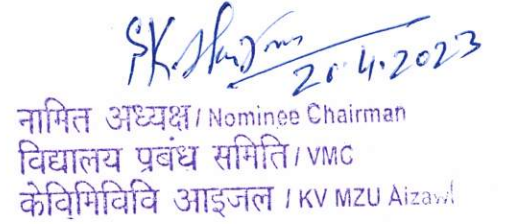 20.4.2023
नामित अध्यक्ष / Nominee Chairman
विद्यालय प्रबंध समिति / VMC
केविमिविवि आइजल / KV MZU Aizawl